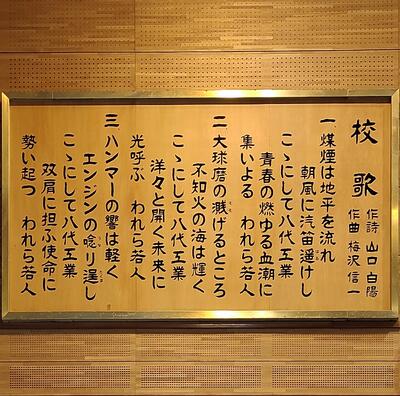 校歌
作詩 山口白陽
作曲 梅沢信一
一 煤煙は地平を流れ
朝風に汽笛遥けし
こゝにして八代工業
青春の燃ゆる血潮に
集いよる われら若人
二 大球磨の濺げるところ
不知火の海は輝く
こゝにして八代工業
洋々と開く未来に
光呼ぶ われら若人
三 ハンマーの響は軽く
エンジンの唸り逞し
こゝにして八代工業
双肩に担ふ使命に
勢い起つ われら若人